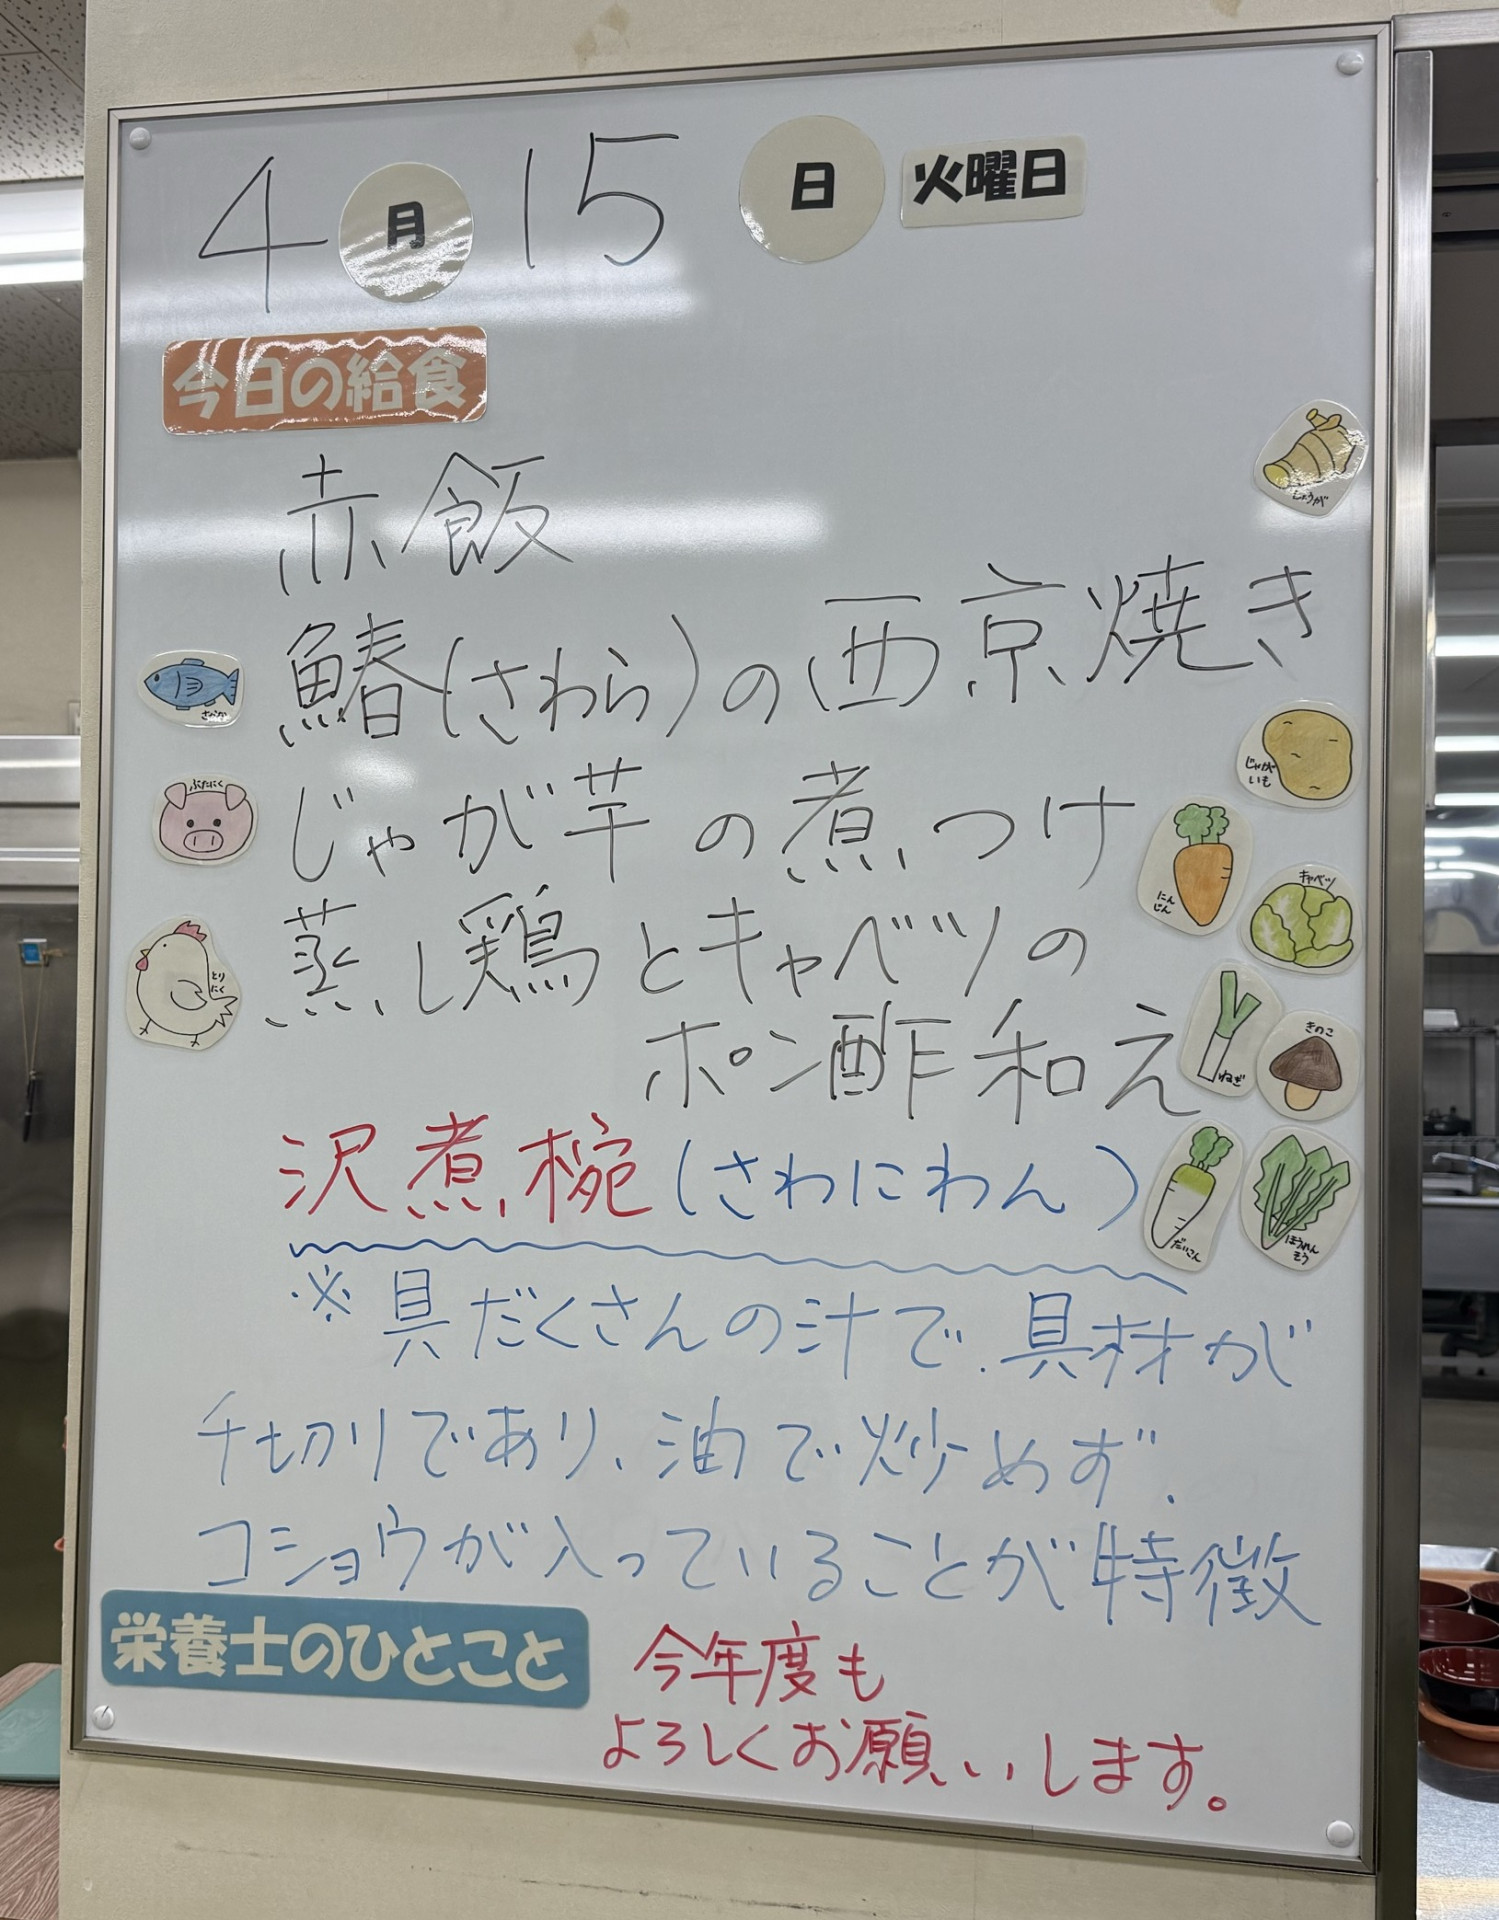 4月15日 火曜日
今日の給食
赤飯
しょうが
鰆(さわら)の西京焼き
さかな
じゃが芋の煮つけ
ぶたにく
じゃがいも
にんじん
キャベツ
蒸し鶏とキャベツの
とりにく
ポン酢和え
ねぎ
きのこ
沢煮椀(さわにわん)
だいこん
ほうれんそう
※具だくさんの汁で、具材が
千切りであり、油で炒めず、
コショウが入っていることが特徴
栄養士のひとこと
今年度も
よろしくお願いします。